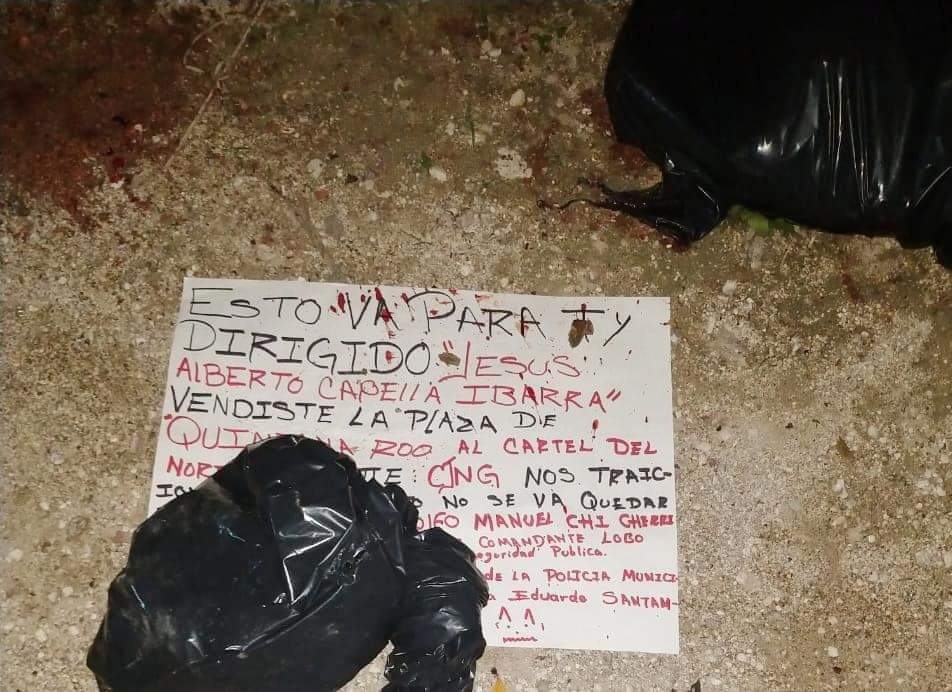 ESTO VA PARA TY
DIRIGIDO "JESUS
ALBERTO CAPELLA IBARRA"
VENDISTE LA PLAZA DE
ROO AL CARTEL DEL
CJNG NOS TRAIC-
NO SE VA QUEDAR
MANUEL CHI CHERRI
COMANDANTE LOBO
Publica.
DE LA POLICIA MUNICI
Eduardo SANTAM-